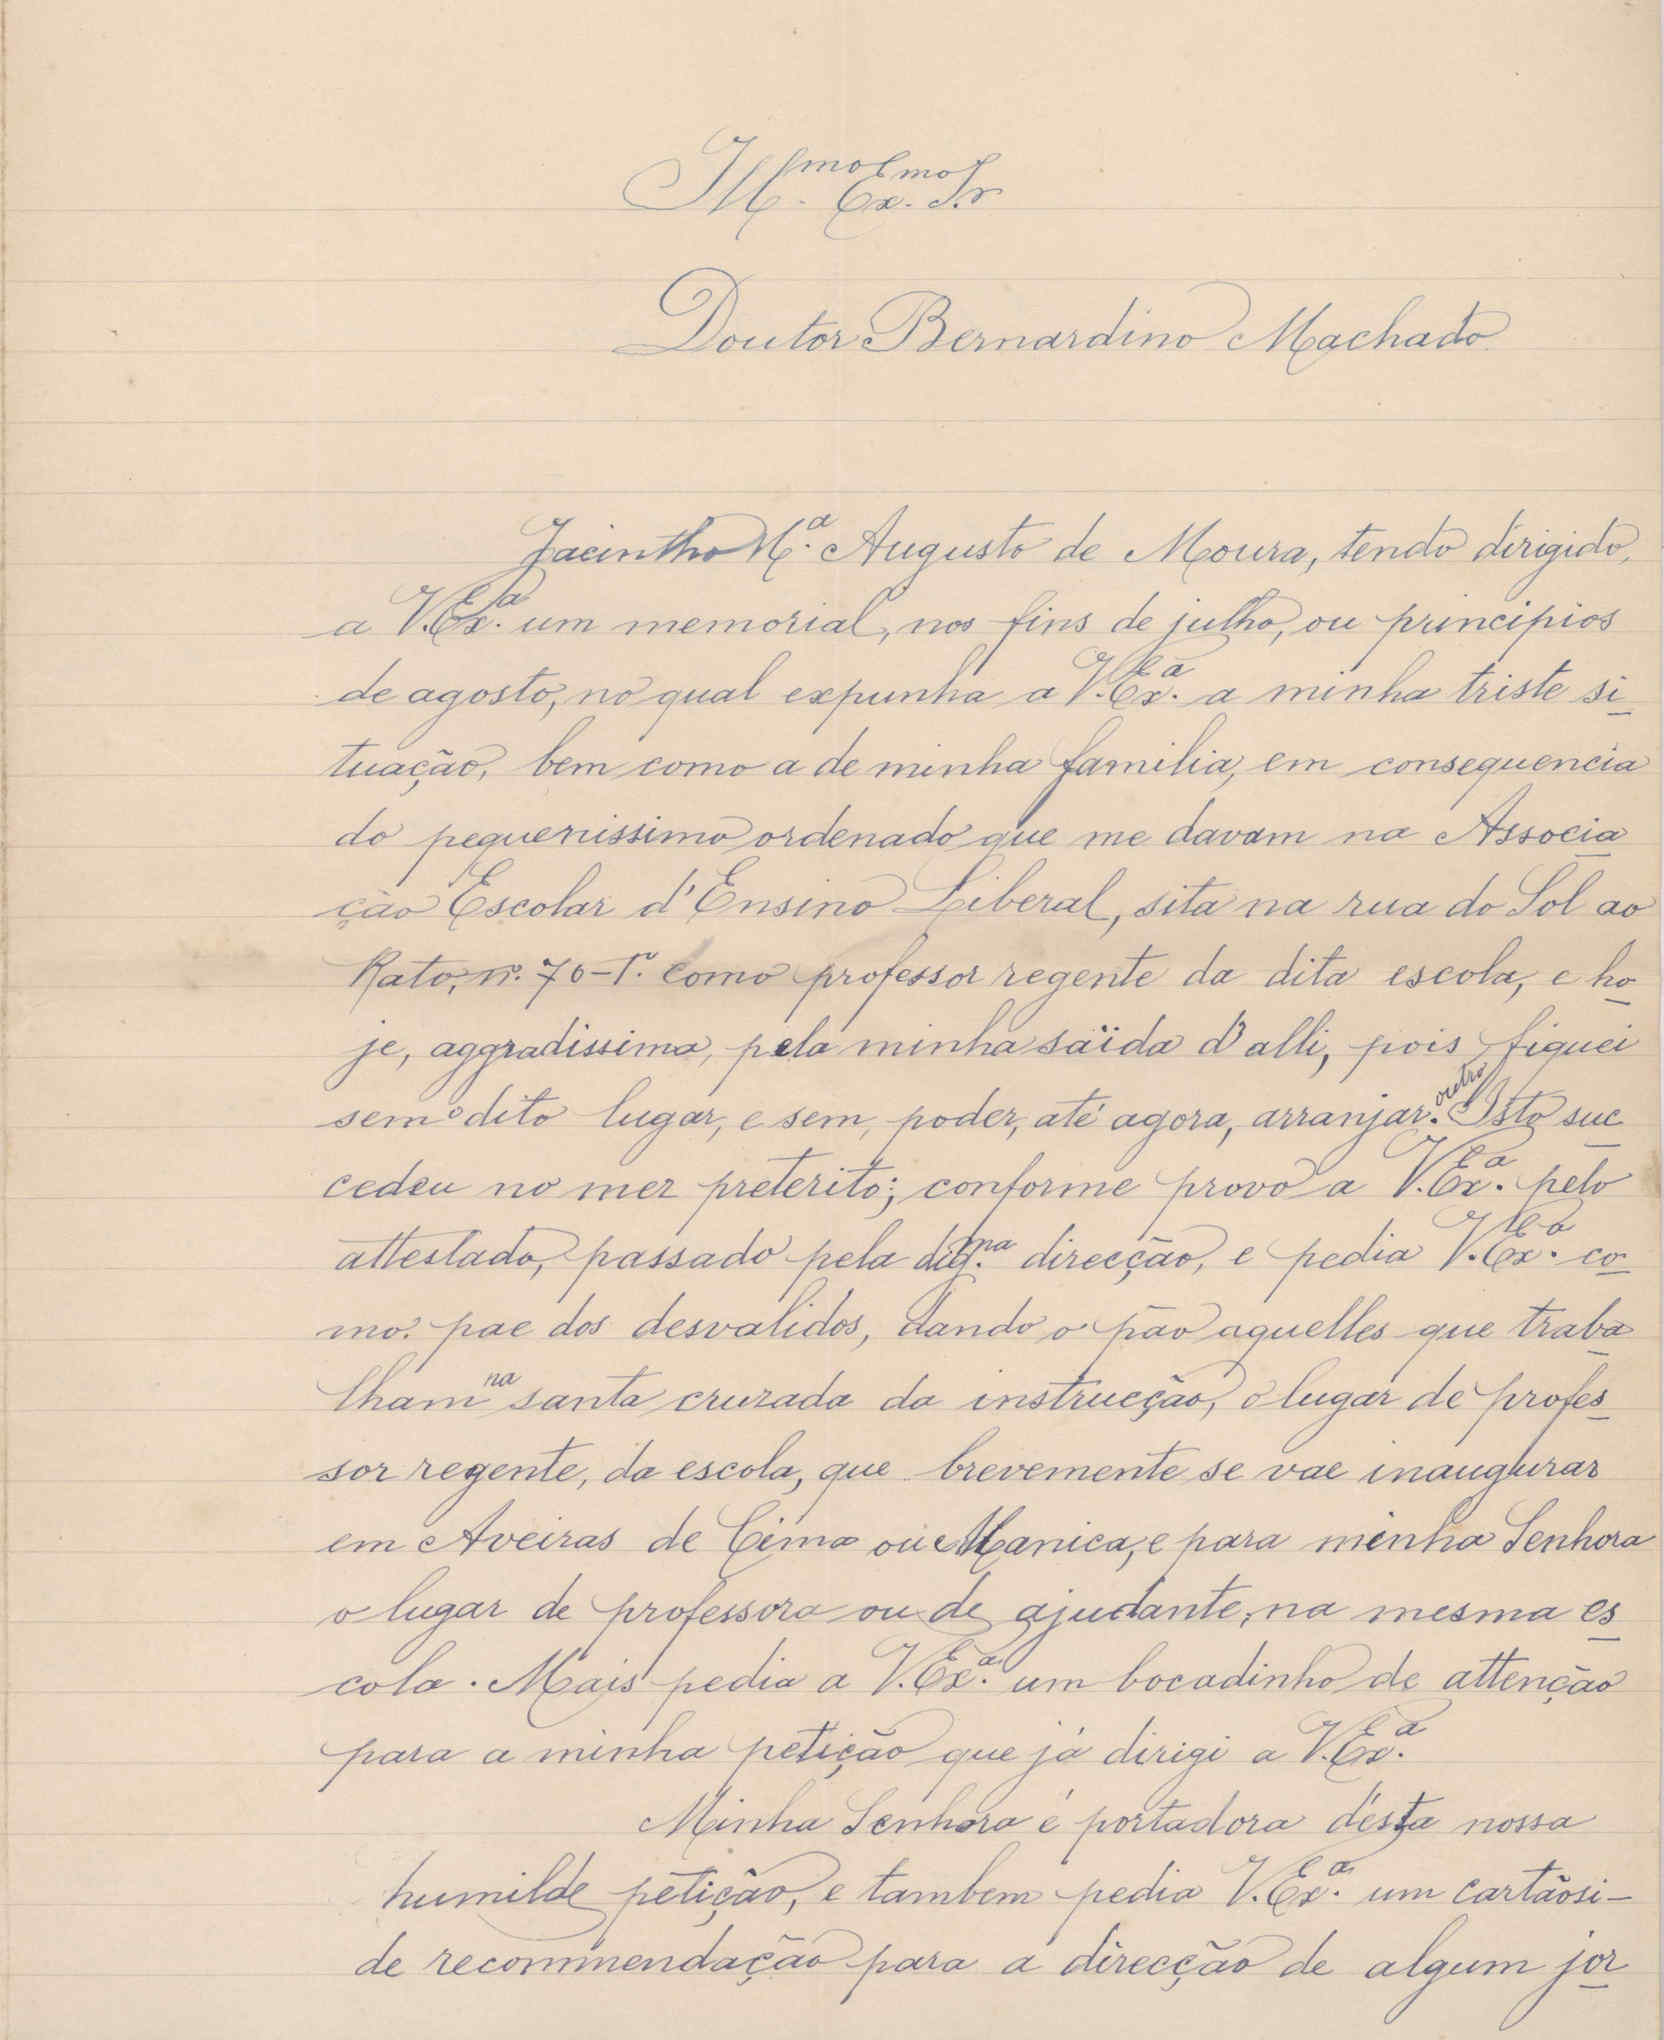 Ill.mo Ex.mo Sr
Doutor Bernardino Machado
Jacintho M.a Augusto de Moura, tendo dirigido,
a V. Ex.a um memorial, nos fins de julho, ou principios
de agosto, no qual expunha a V. Ex.a a minha triste si
tuação, bem como a de minha familia, em consequencia
do pequenissimo ordenado que me davam na Associa
ção Escolar d'Ensino Liberal, sita na rua do Sol ao
Rato, n.º 70-1.º como professor regente da dita escola, e ho
je, aggradissima, pela minha saïda d'alli, pois fiquei
sem o dito lugar, e sem, poder, até agora, arranjar outro. Isto suc
cedeu no mez preterito; conforme provo a V. Ex.a pelo
attestado, passado pela dig.na direcção, e pedia V. Ex.a co
mo pae dos desvalidos, dando o pão aquelles que traba
lham na santa cruzada da instrucção, o lugar de profes
sor regente, da escola, que brevemente se vae inaugurar
em Aveiras de Cima ou Manica, e para minha Senhora
o lugar de professora ou de ajudante, na mesma es
cola. Mais pedia a V. Ex.a um bocadinho de attenção
para a minha petição que já dirigi a V. Ex.a
Minha Senhora é portadora désta nossa
humilde petição, e tambem pedia V. Ex.a um cartãosi-
de recommendação para a direcção de algum jor